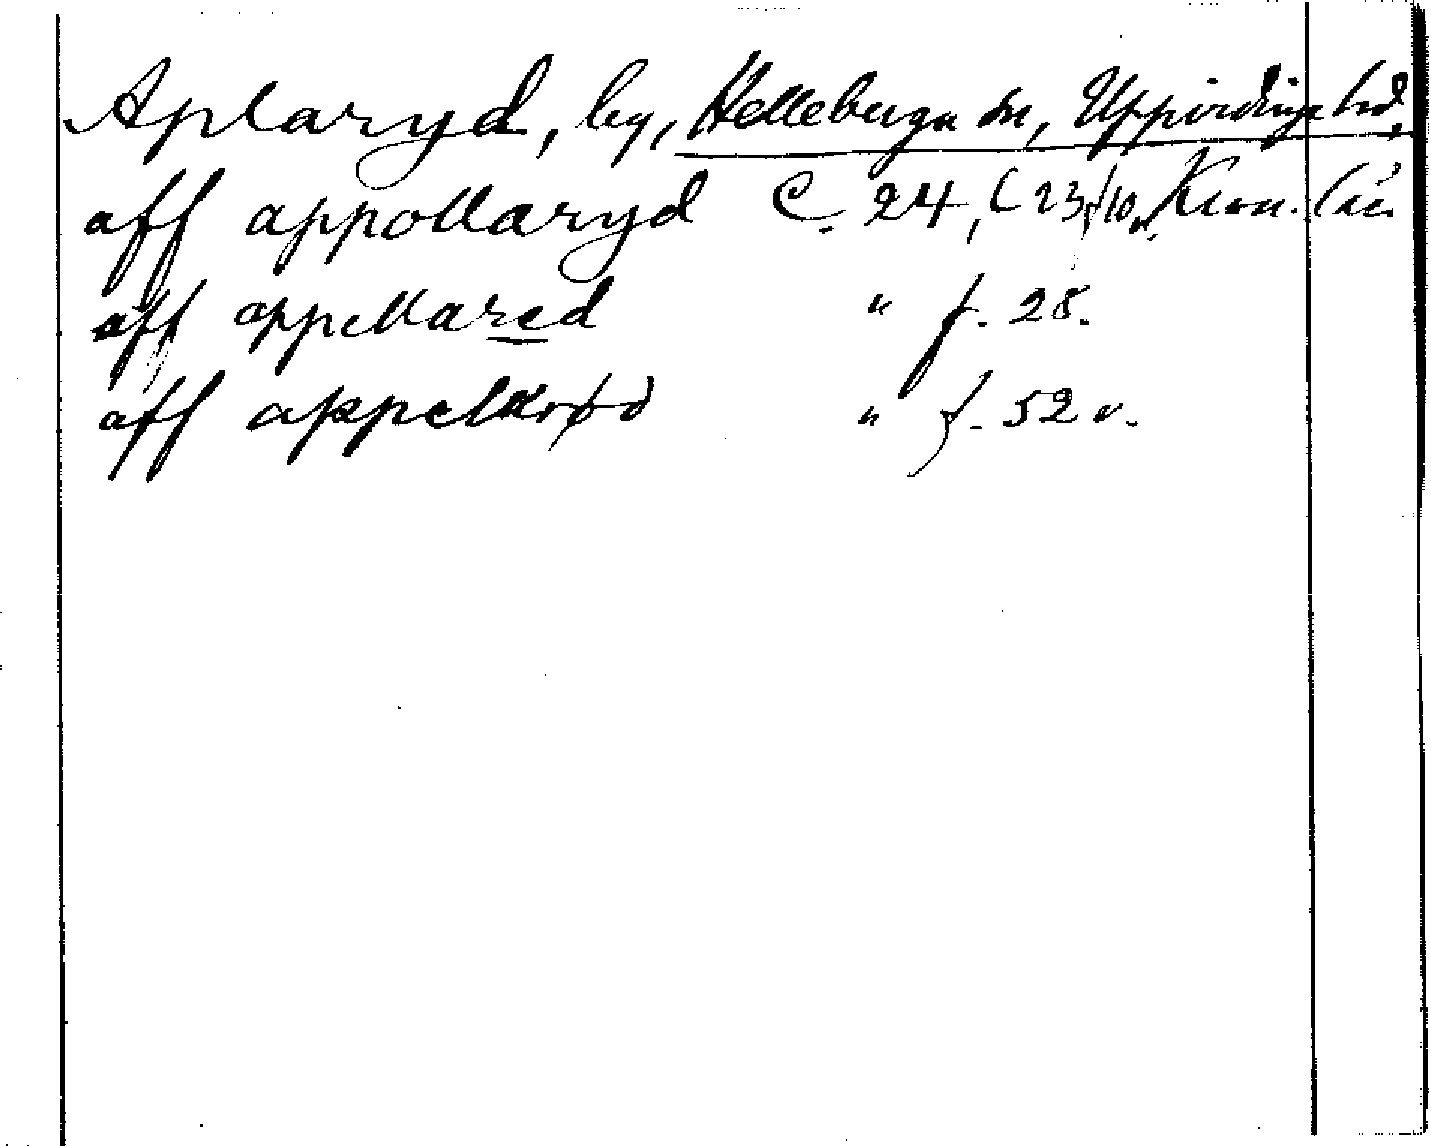 Aplaryd, by, Helleberga sn, Uppvidinge hd,
aff appollaryd C. 24, (23) f 10 v. Kron. län
aff appellared " f. 28.
aff appelkrød " f. 52 v.